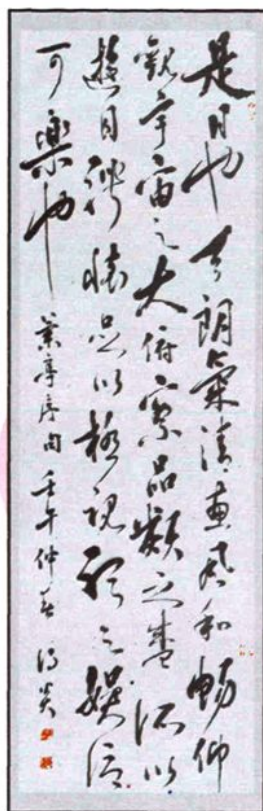 是日也天朗氣清惠風和暢仰
觀宇宙之大俯察品類之盛所以
遊目騁懷足以極視聽之娛信
可樂也 蘭亭序句 壬午仲春